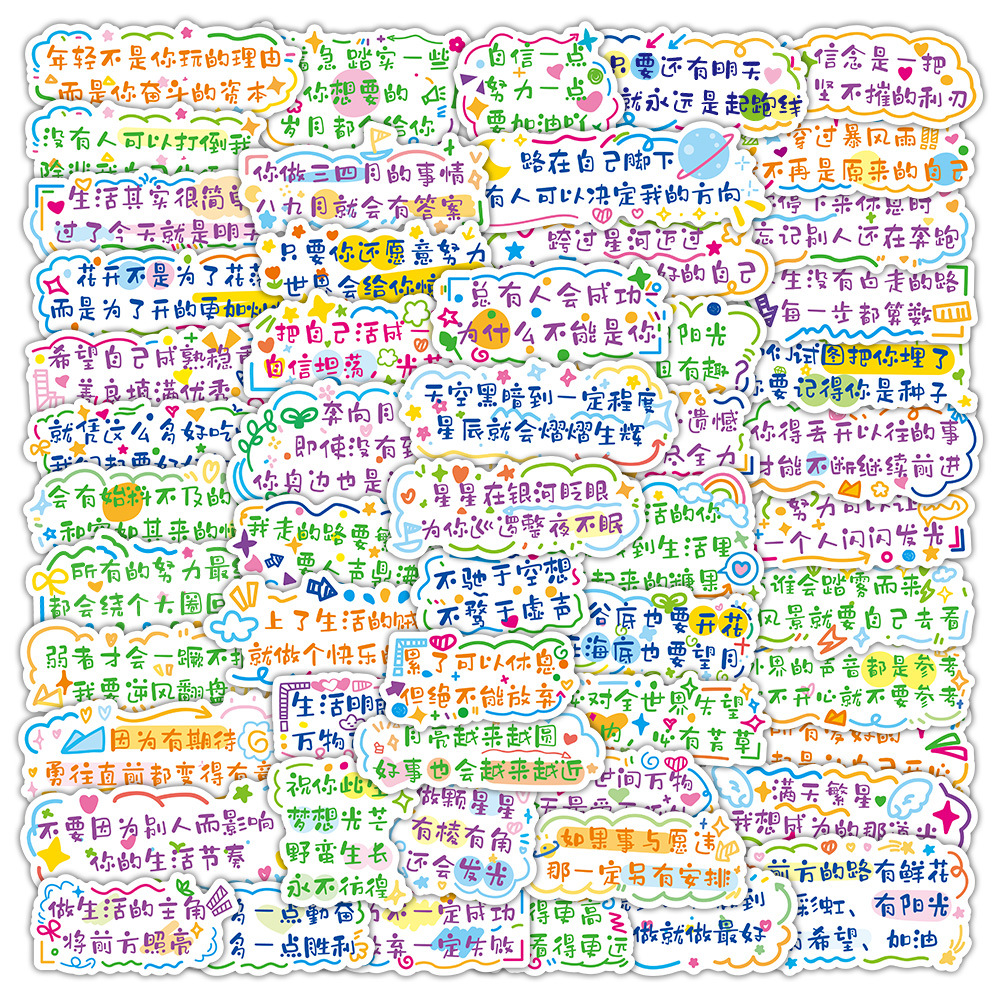 年轻不是你玩的理由
而是你奋斗的资本
着急 踏实一些
你想要的
岁月都会给你
自信一点
努力一点
要加油吖
只要还有明天
就永远是起跑线
信念是一把
坚不摧的利刃
没有人可以打倒我
穿过暴风雨
不再是原来的自己
你做三四月的事情
八九月就会有答案
路在自己脚下
有人可以决定我的方向
生活其实很简单
过了今天就是明天
停下来休息时
忘记别人还在奔跑
只要你还愿意努力
世界会给你惊
跨过星河迈过
好的自己
花开不是为了花落
而是为了开的更加灿
总有人会成功
为什么不能是你
生没有白走的路
每一步都算数
把自己活成一
自信坦荡，光芒
阳光
且有趣
希望自己成熟稳重
善良填满优秀
你试图把你埋了
你要记得你是种子
天空黑暗到一定程度
星辰就会熠熠生辉
就凭这么多好吃
奔向月
即使没有到
你身边也是
遗憾
尽全力
你得丢开以往的事
才能不断继续前进
会有始料不及的
和突如其来的惊
星星在银河眨眼
为你巡逻整夜不眠
我走的路要
要人声鼎沸
活的你
到生活里
起来的糖果
努力可以让
一个人闪闪发光
所有的努力最
都会绕个大圈回
不驰于空想
不骛于虚声
谁会踏雾而来
风景就要自己去看
上了生活的贼
就做个快乐的
谷底也要开花
海底也要望月
弱者才会一蹶不振
我要逆风翻盘
累了可以休息
但绝不能放弃
界的声音都是参考
不开心就不要参考
生活明朗
万物
对全世界失望
内心有芳草
因为有期待
勇往直前都变得有意
月亮越来越圆
好事也会越来越近
祝你此
梦想光芒
野蛮生长
永不彷徨
做颗星星
有棱有角
还会发光
世间万物
满天繁星
我想成为的那道光
不要因为别人而影响
你的生活节奏
如果事与愿违
那一定另有安排
前方的路有鲜花
彩虹、有阳光
有希望、加油
做生活的主角
将前方照亮
多一点勤奋
多一点胜利
不一定成功
放弃一定失败
得更高
看得更远
到
做就做最好